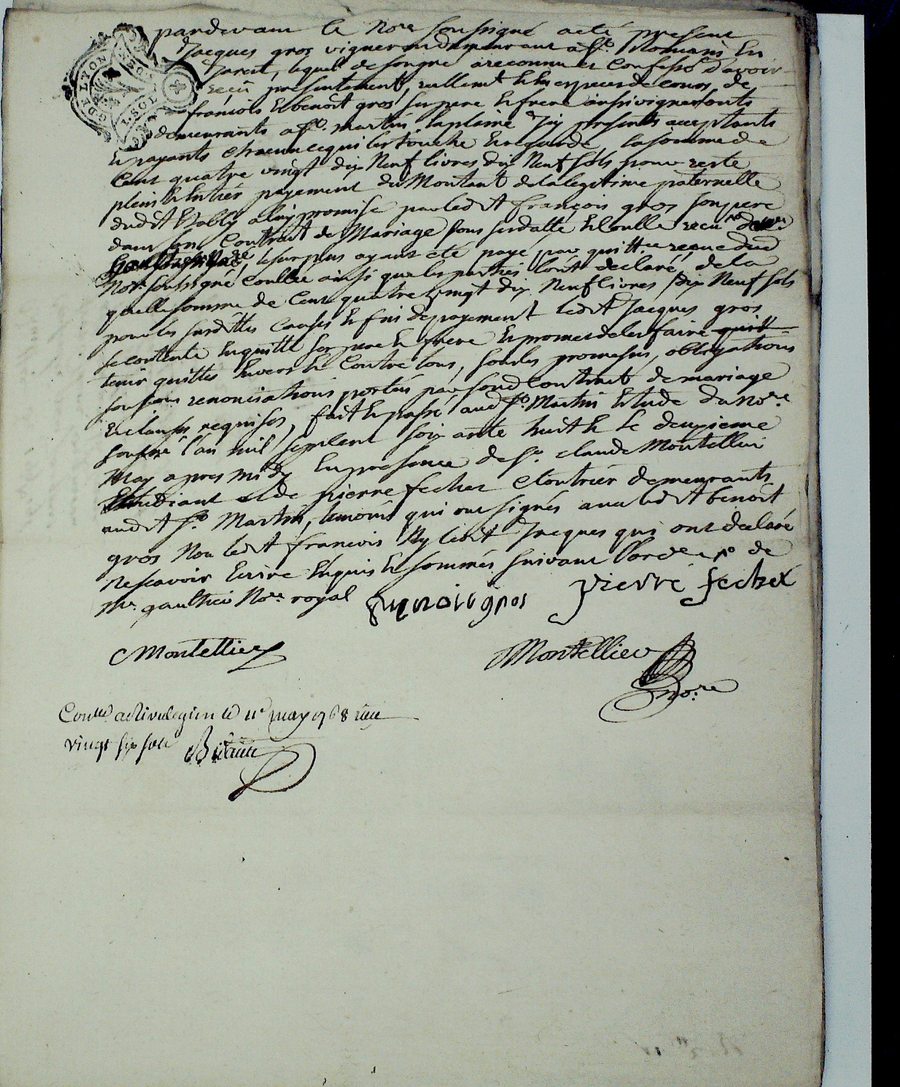 G. DE LYON
pardevant le No.re soussigné acté présent
Jacques gros vigneron demeurant a S.t Romain En
Jarest, lequel de son gré a reconnu et Confessé d'avoir
reçu présentement, réellement et En especes de Cours, de
françois et benoit gros, son pere et frere aussi vignerons
demeurants a S.t martin laplaine Icy presents acceptants
Et payants chacun ce qui les touche et regarde, la somme de
Cent quatre vingt dix Neuf livres dix Neuf sols pour reste
plein et Entier payement du Montant de la légitime paternelle
dudit Etably a luy promise par ledit françois gros son pere
dans son Contract de Mariage sous sa datte Et Conllé reçu
le surplus ayant été payé par quittce reçue dud
No.re soussigné Conllée ainsi que les parties l'ont declaré, de la
quelle somme de Cent quatre vingt dix Neuf livres dix Neuf sols
pour les susdittes Causes Et fin de payement ledit Jacques gros
se contente En quitte son pere et frere Et promet de les faire
tenir quittes Envers Et Contre tous, sous les promesses, obligations
soumissions renonciations portées par sond Contract de mariage
Et clauses requises, fait Et passé aud S.t Martin Etude du No.re
soussigné l'an mil sept cent soixante huit Et le deuxieme
May apres midy En presence de S.r claude Montellier
Etudiant et de pierre fechet demeurants
audit S.t Martin, temoins qui ont signés avec ledit benoit
gros Non ledit françois Ny ledit Jacques qui ont declaré
Ne scavoir Ecrire Enquis Et sommés suivant l'ord
M.e gaultier No.re royal benoit gros pierre fechet
CMontellier Montellier
No.re
Conllé a Rivedegier le 11e may 1768 reçu
vingt six sols